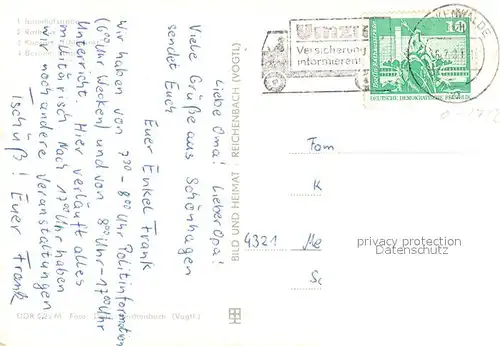 Liebe Oma! Lieber Opa!
Viele Grüße aus Schönhagen
sendet Euch
Euer Enkel Frank
Wir haben von 7³⁰-8⁰⁰ Uhr Politinformation
(6⁰⁰ Uhr Wecken) und von 8⁰⁰ Uhr-17⁰⁰ Uhr
Unterricht. Hier verläuft alles
militärisch Nach 17⁰⁰ Uhr haben
wir noch andere Veranstaltungen
Tschüß! Euer Frank
BILD UND HEIMAT REICHENBACH (VOGTL)
Umzug
Versicherung
informieren!
KENWALDE
10
DEUTSCHE DEMOKRATISCHE REPUBLIK
Fam
K
4321 Me
Sc
privacy protection
Datenschutz
Reichenbach (Vogtl.)